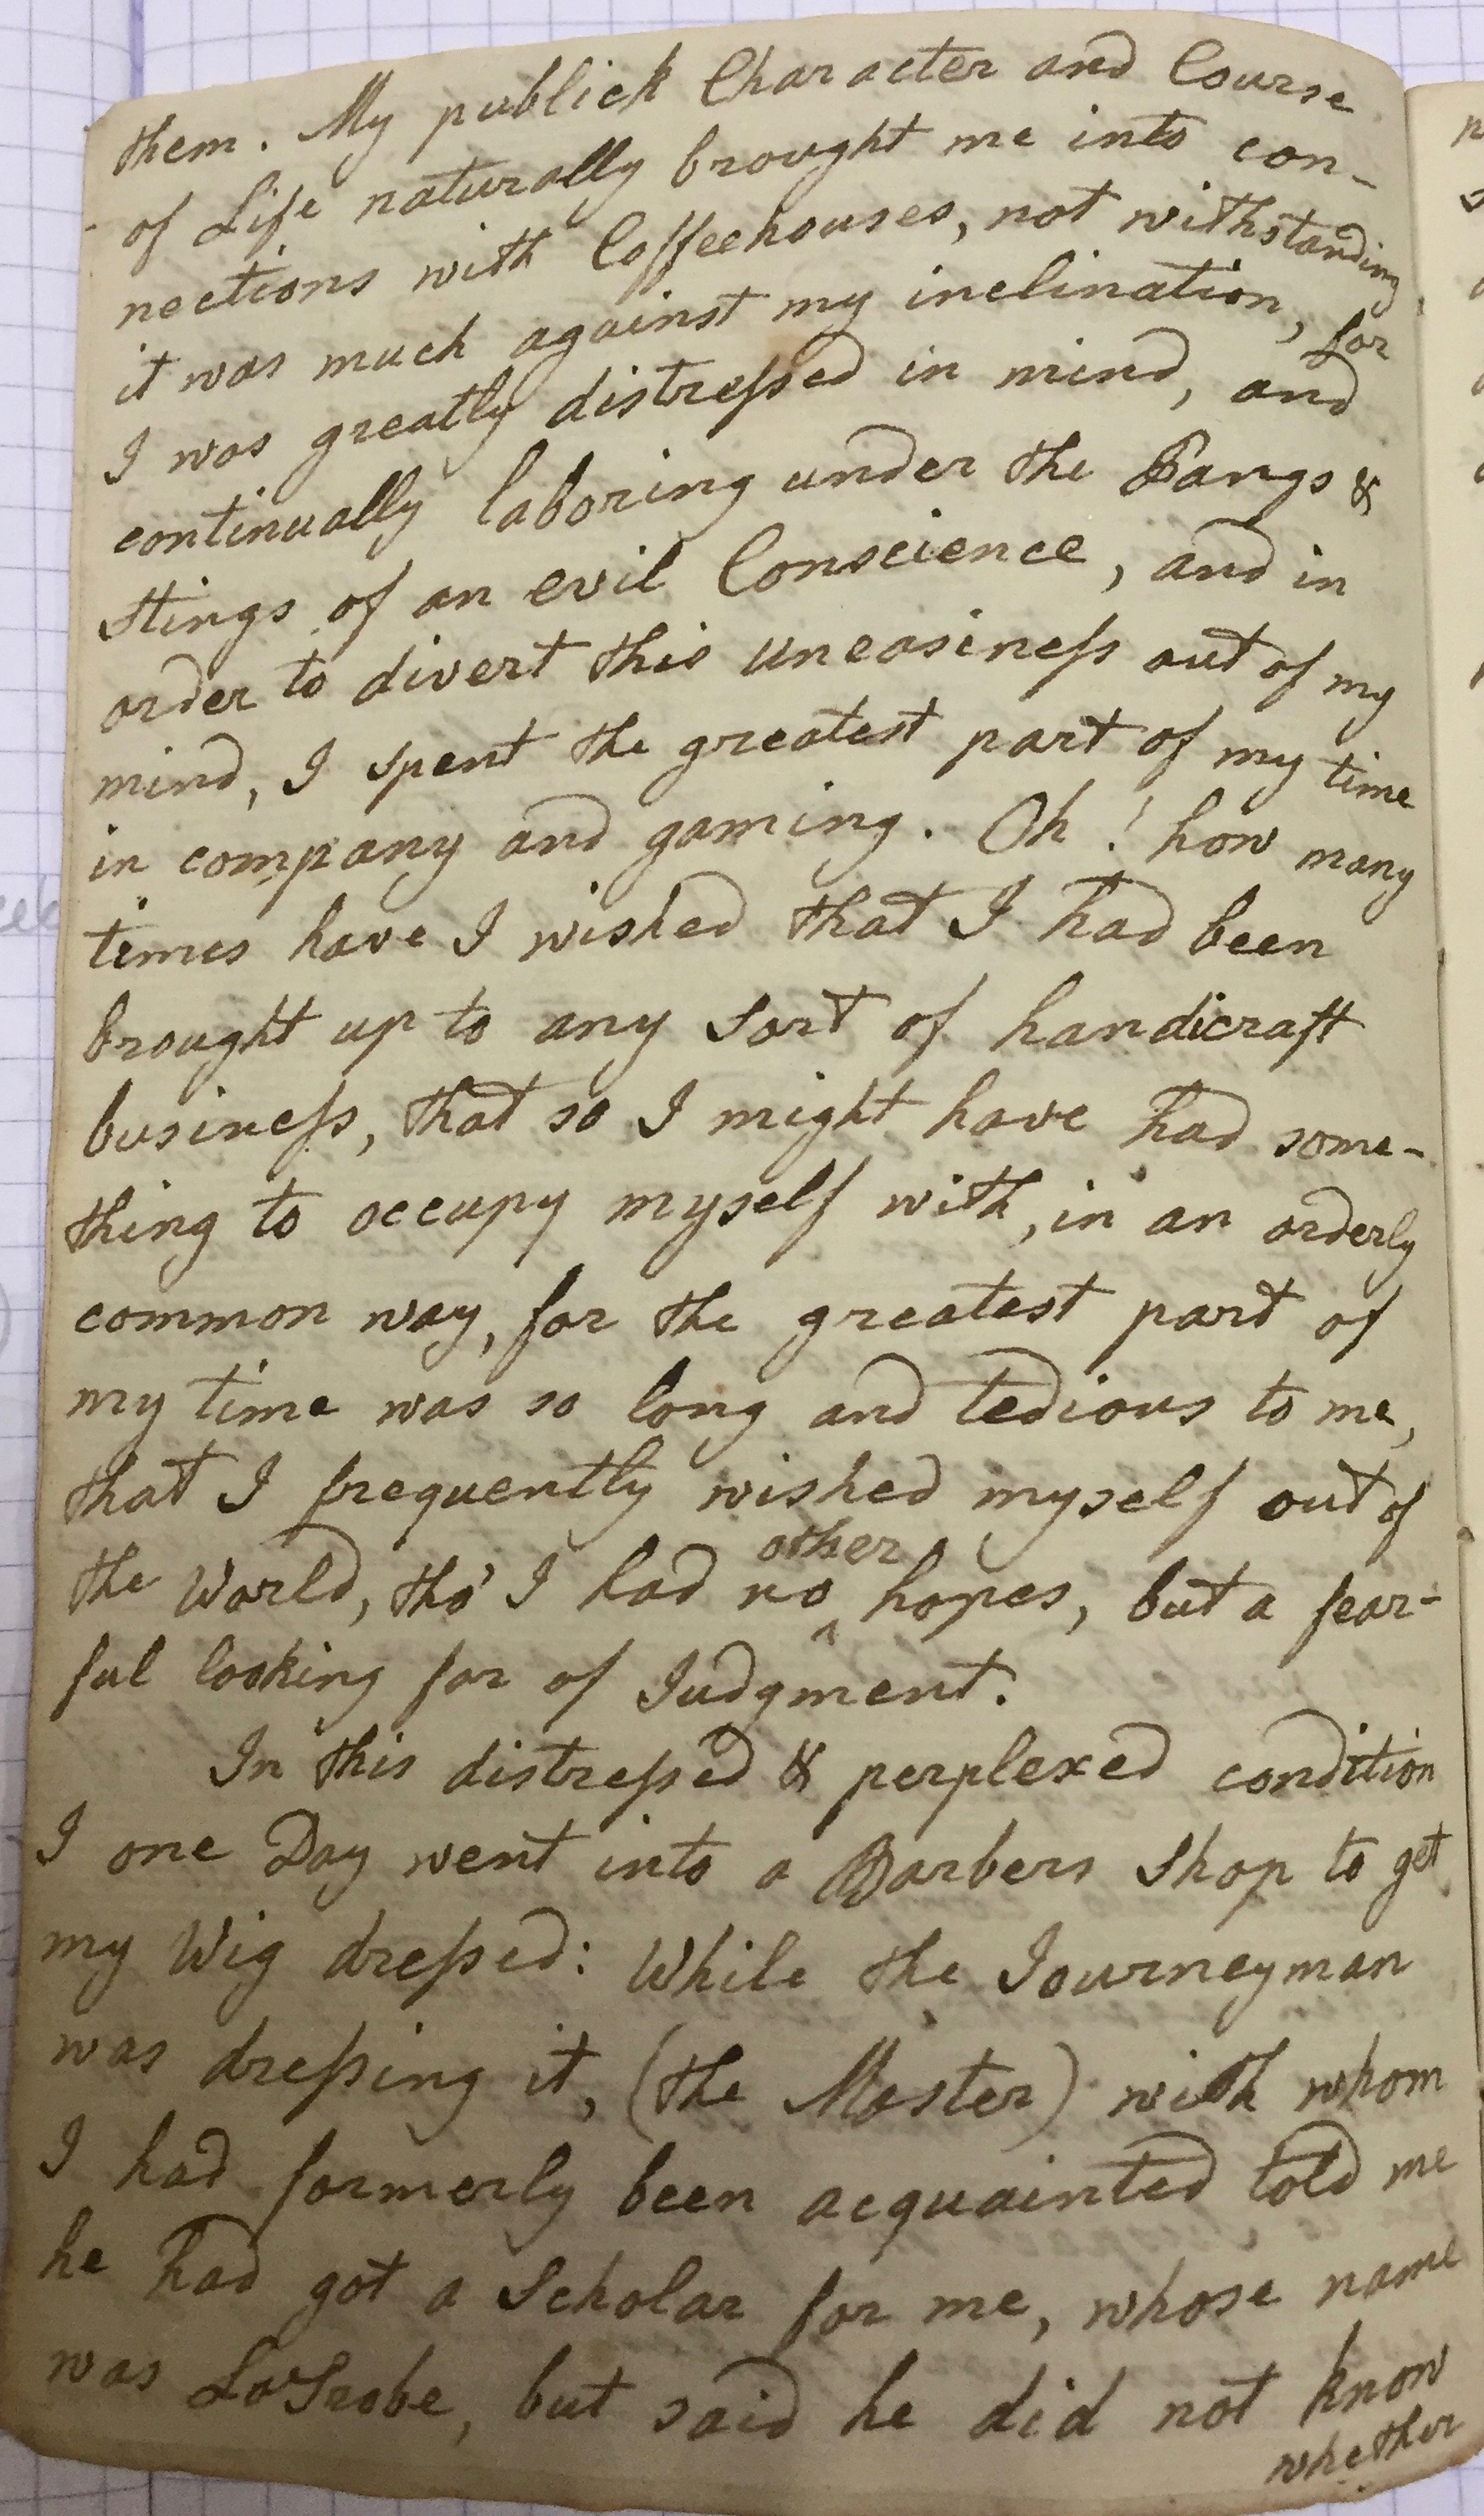 them. My publick Character and Course
of Life naturally brought me into con-
nections with Coffeehouses, not withstanding
it was much against my inclination, for
I was greatly distreſsed in mind, and
continually laboring under the Pangs &
Stings of an evil Conscience, and in
order to divert this uneasineſs out of my
mind, I spent the greatest part of my time
in company and gaming. Oh! how many
times have I wished that I had been
brought up to any sort of handicraft
busineſs, that so I might have had some-
thing to occupy myself with, in an orderly
common way, for the greatest part of
my time was so long and tedious to me,
that I frequently wished myself out of
the World, tho' I had no other hopes, but a fear-
ful looking for of Judgment.
In this distreſsed & perplexed condition
I one Day went into a Barbers Shop to get
my Wig dreſsed: While the Journeyman
was dreſsing it, (the Master) with whom
I had formerly been acquainted told me
he had got a Scholar for me, whose name
was LaTrobe, but said he did not know
whether